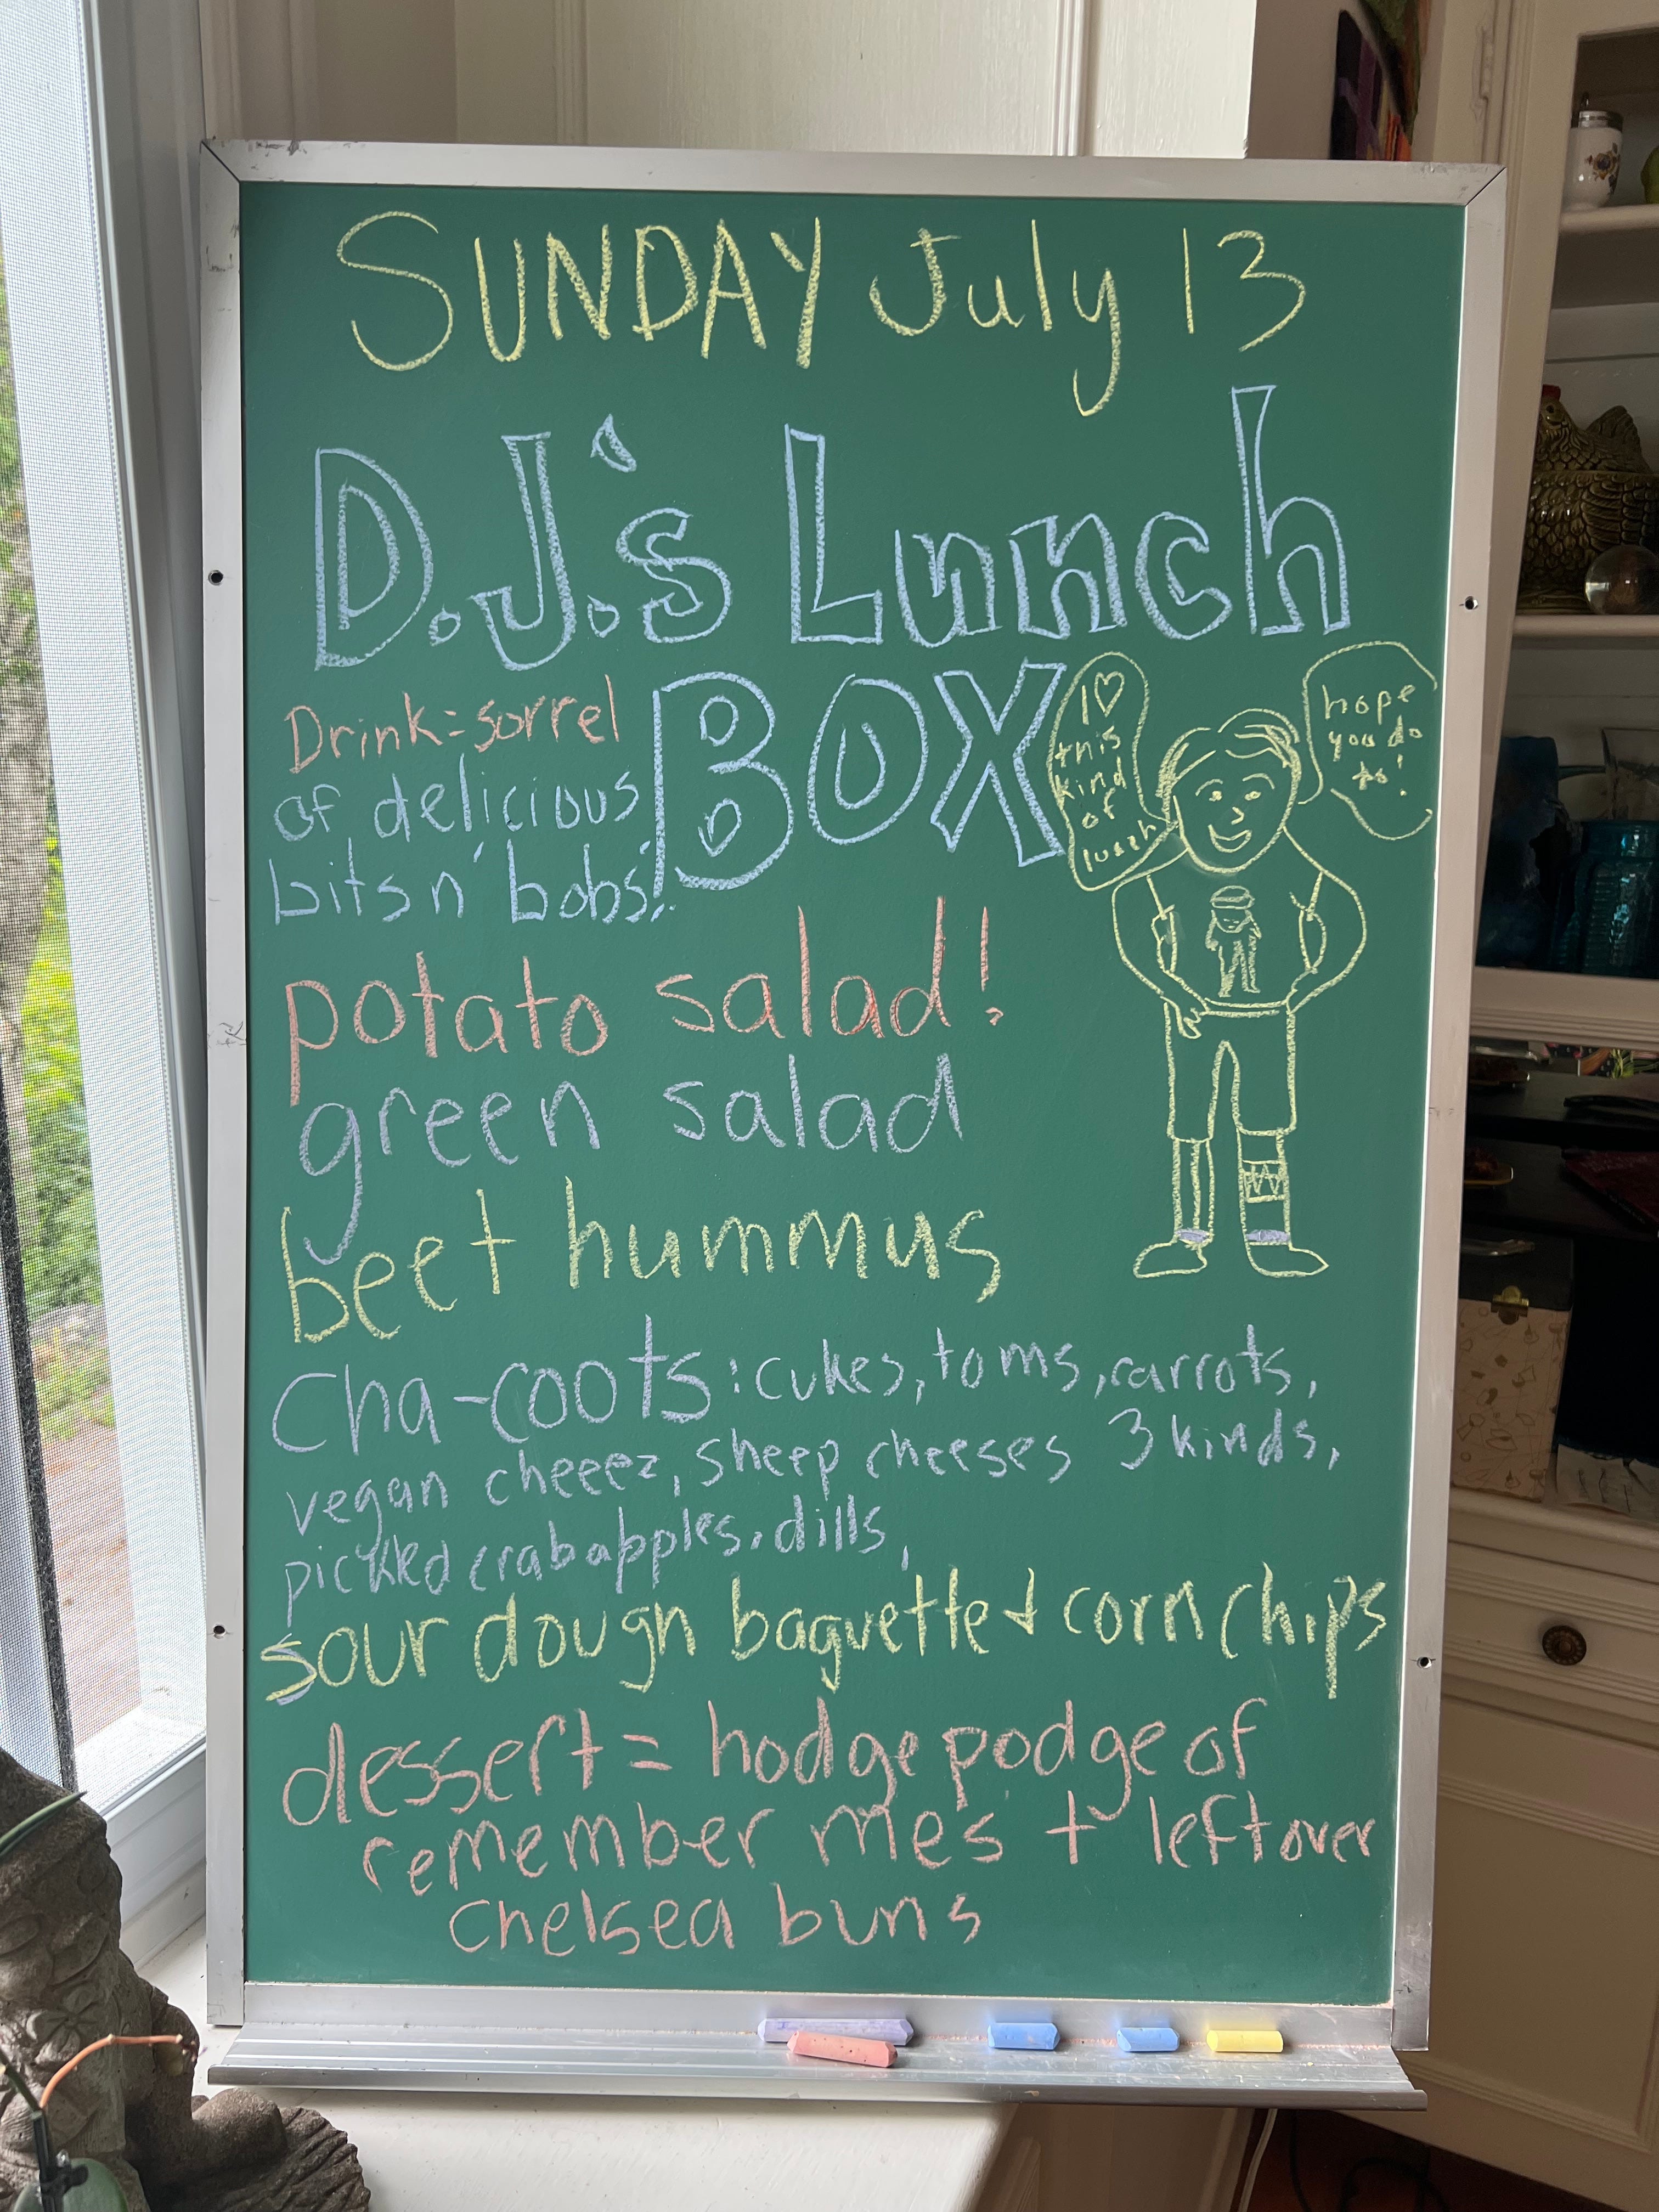 SUNDAY July 13
D.J.'s Lunch
BOX
Drink=sorrel
of delicious
bits n' bobs!
I ♡
this
kind
of
lunch
hope
you do
to!
potato salad!
green salad
beet hummus
Cha-coots: cukes, toms, carrots,
vegan cheeez, sheep cheeses 3 kinds,
pickled crabapples, dills,
sour dough baguette + corn chips
dessert = hodge podge of
remember mes + leftover
chelsea buns